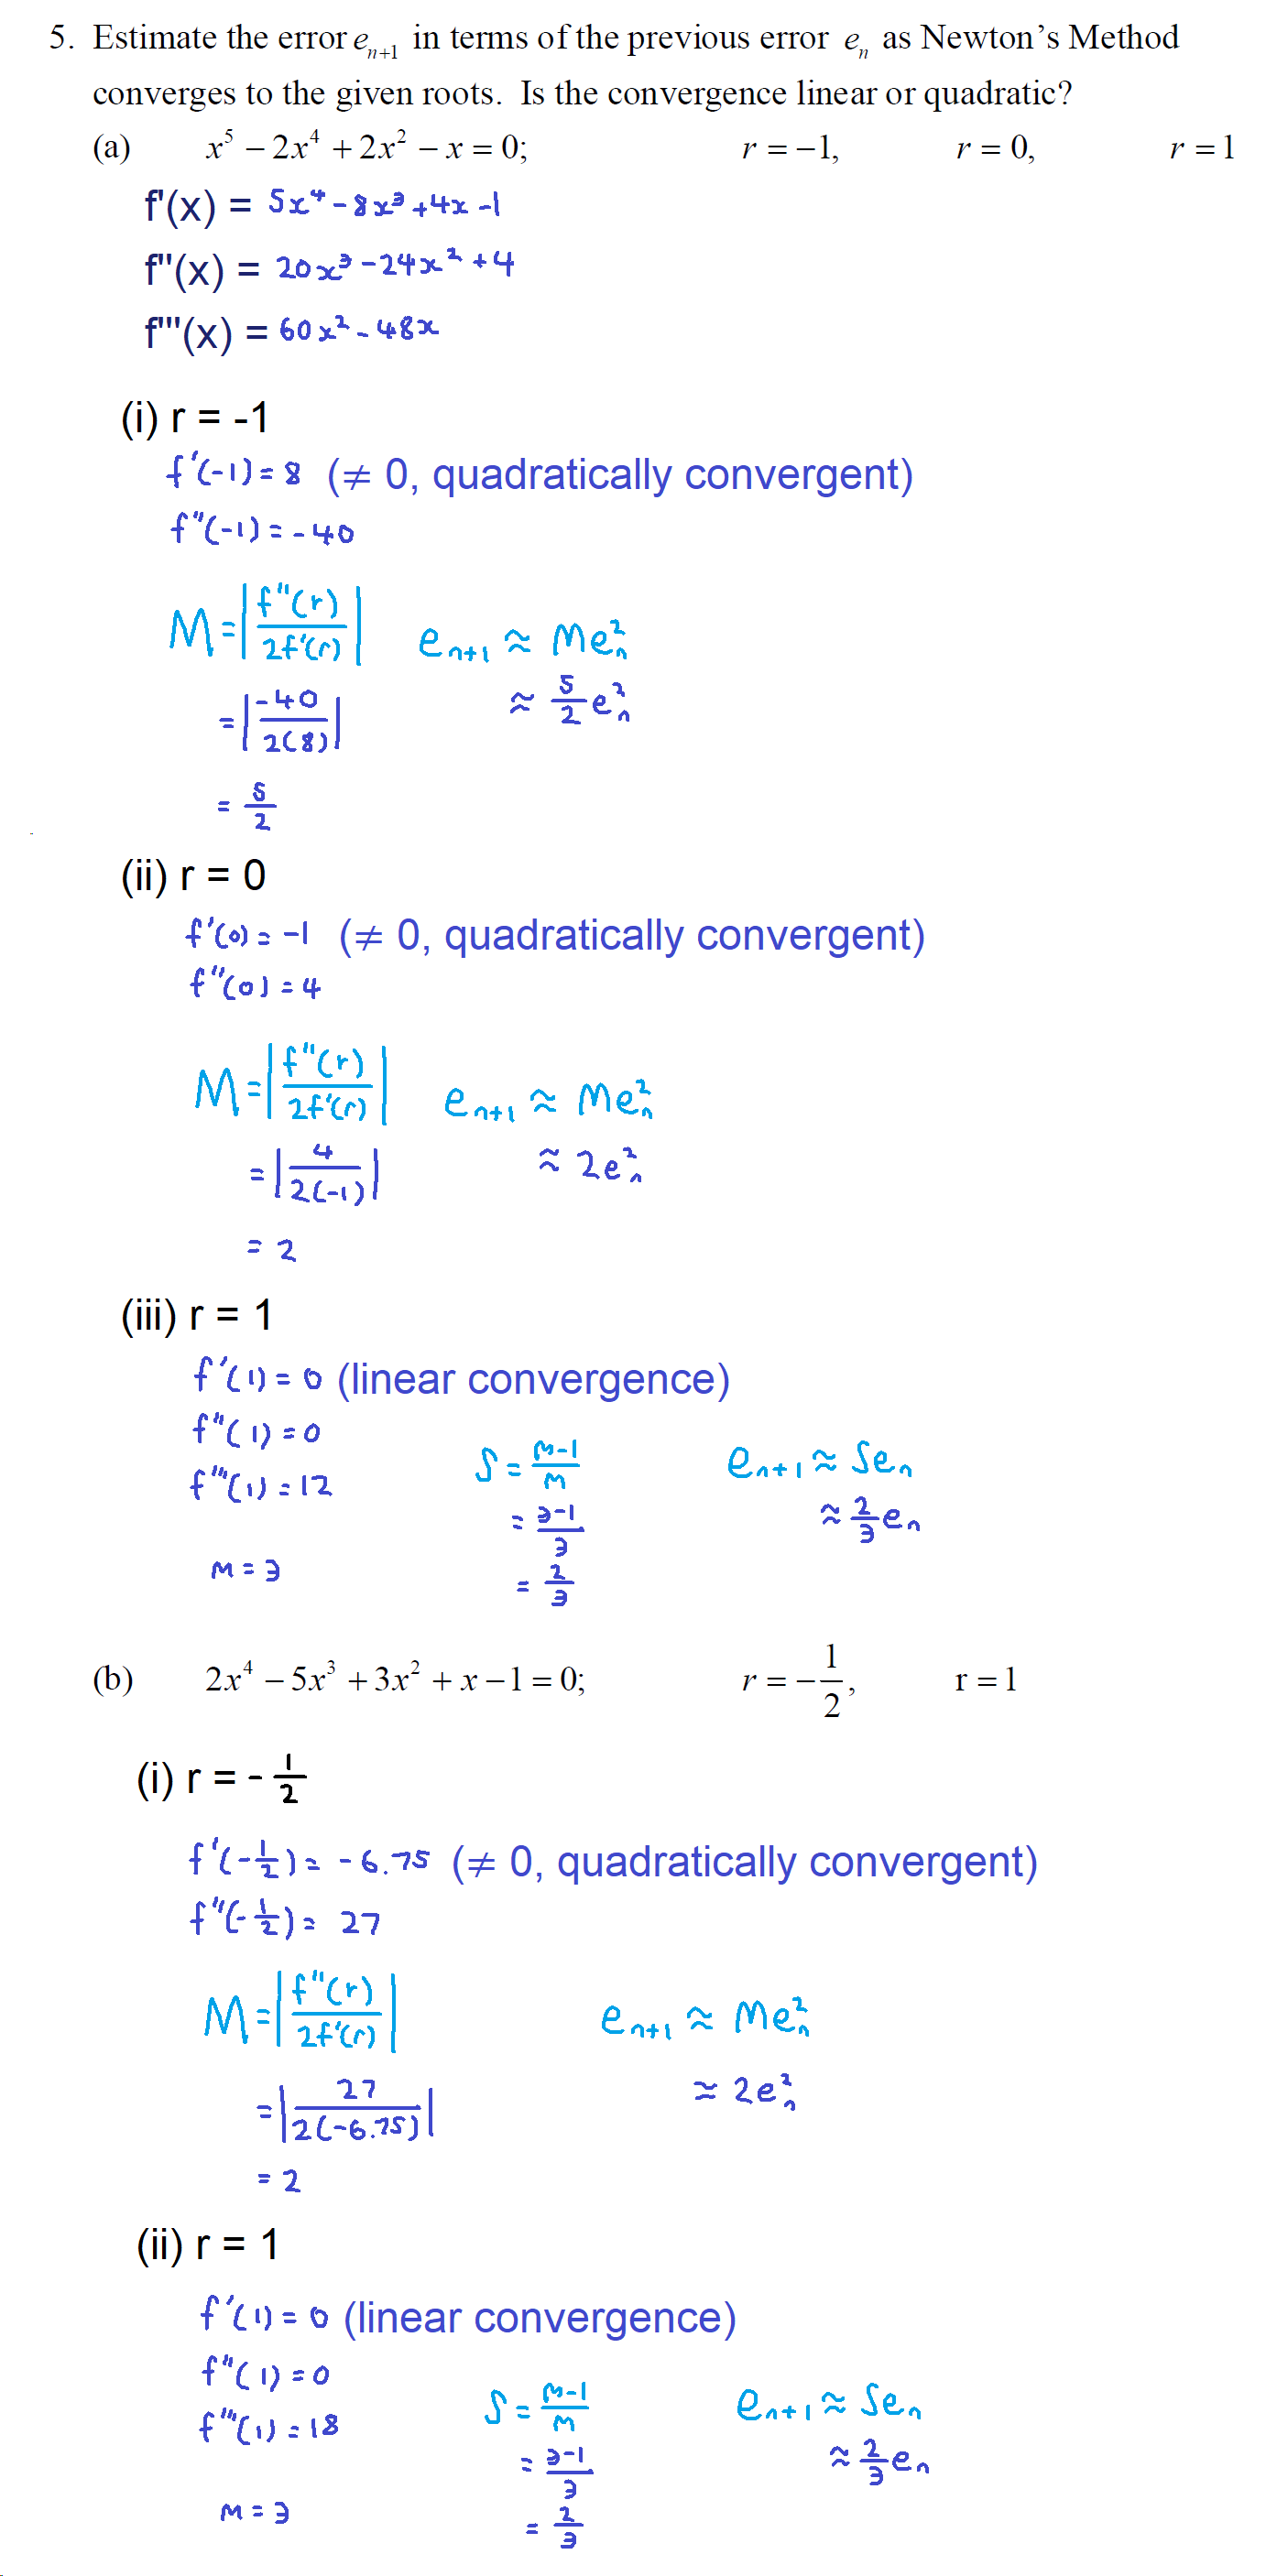 5. Estimate the error e_{n+1} in terms of the previous error e_n as Newton's Method
converges to the given roots. Is the convergence linear or quadratic?
(a) x^5 − 2x^4 + 2x^2 − x = 0; r = −1, r = 0, r = 1
f'(x) = 5x^4 - 8x^3 + 4x - 1
f''(x) = 20x^3 - 24x^2 + 4
f'''(x) = 60x^2 - 48x
(i) r = -1
f'(-1) = 8 (≠ 0, quadratically convergent)
f''(-1) = -40
M = |f''(r) / 2f'(r)| e_{n+1} ≈ Me_n^2
= |-40 / 2(8)| ≈ 5/2 e_n^2
= 5/2
(ii) r = 0
f'(0) = -1 (≠ 0, quadratically convergent)
f''(0) = 4
M = |f''(r) / 2f'(r)| e_{n+1} ≈ Me_n^2
= |4 / 2(-1)| ≈ 2e_n^2
= 2
(iii) r = 1
f'(1) = 0 (linear convergence)
f''(1) = 0
f'''(1) = 12 S = m-1 / m e_{n+1} ≈ Se_n
= 3-1 / 3 ≈ 2/3 e_n
m = 3 = 2/3
(b) 2x^4 − 5x^3 + 3x^2 + x − 1 = 0; r = −1/2, r = 1
(i) r = - 1/2
f'(-1/2) = -6.75 (≠ 0, quadratically convergent)
f''(-1/2) = 27
M = |f''(r) / 2f'(r)| e_{n+1} ≈ Me_n^2
= |27 / 2(-6.75)| ≈ 2e_n^2
= 2
(ii) r = 1
f'(1) = 0 (linear convergence)
f''(1) = 0
f'''(1) = 18 S = m-1 / m e_{n+1} ≈ Se_n
= 3-1 / 3 ≈ 2/3 e_n
m = 3 = 2/3